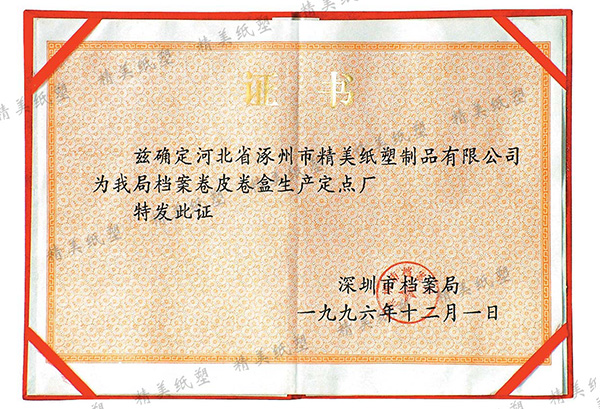 证书
兹确定河北省涿州市精美纸塑制品有限公司
为我局档案卷皮卷盒生产定点厂
特发此证
深圳市档案局
一九九六年十二月一日
精美纸塑
精美纸塑
精美纸塑
精美纸塑
精美纸塑
精美纸塑
精美纸塑
精美纸塑
精美纸塑